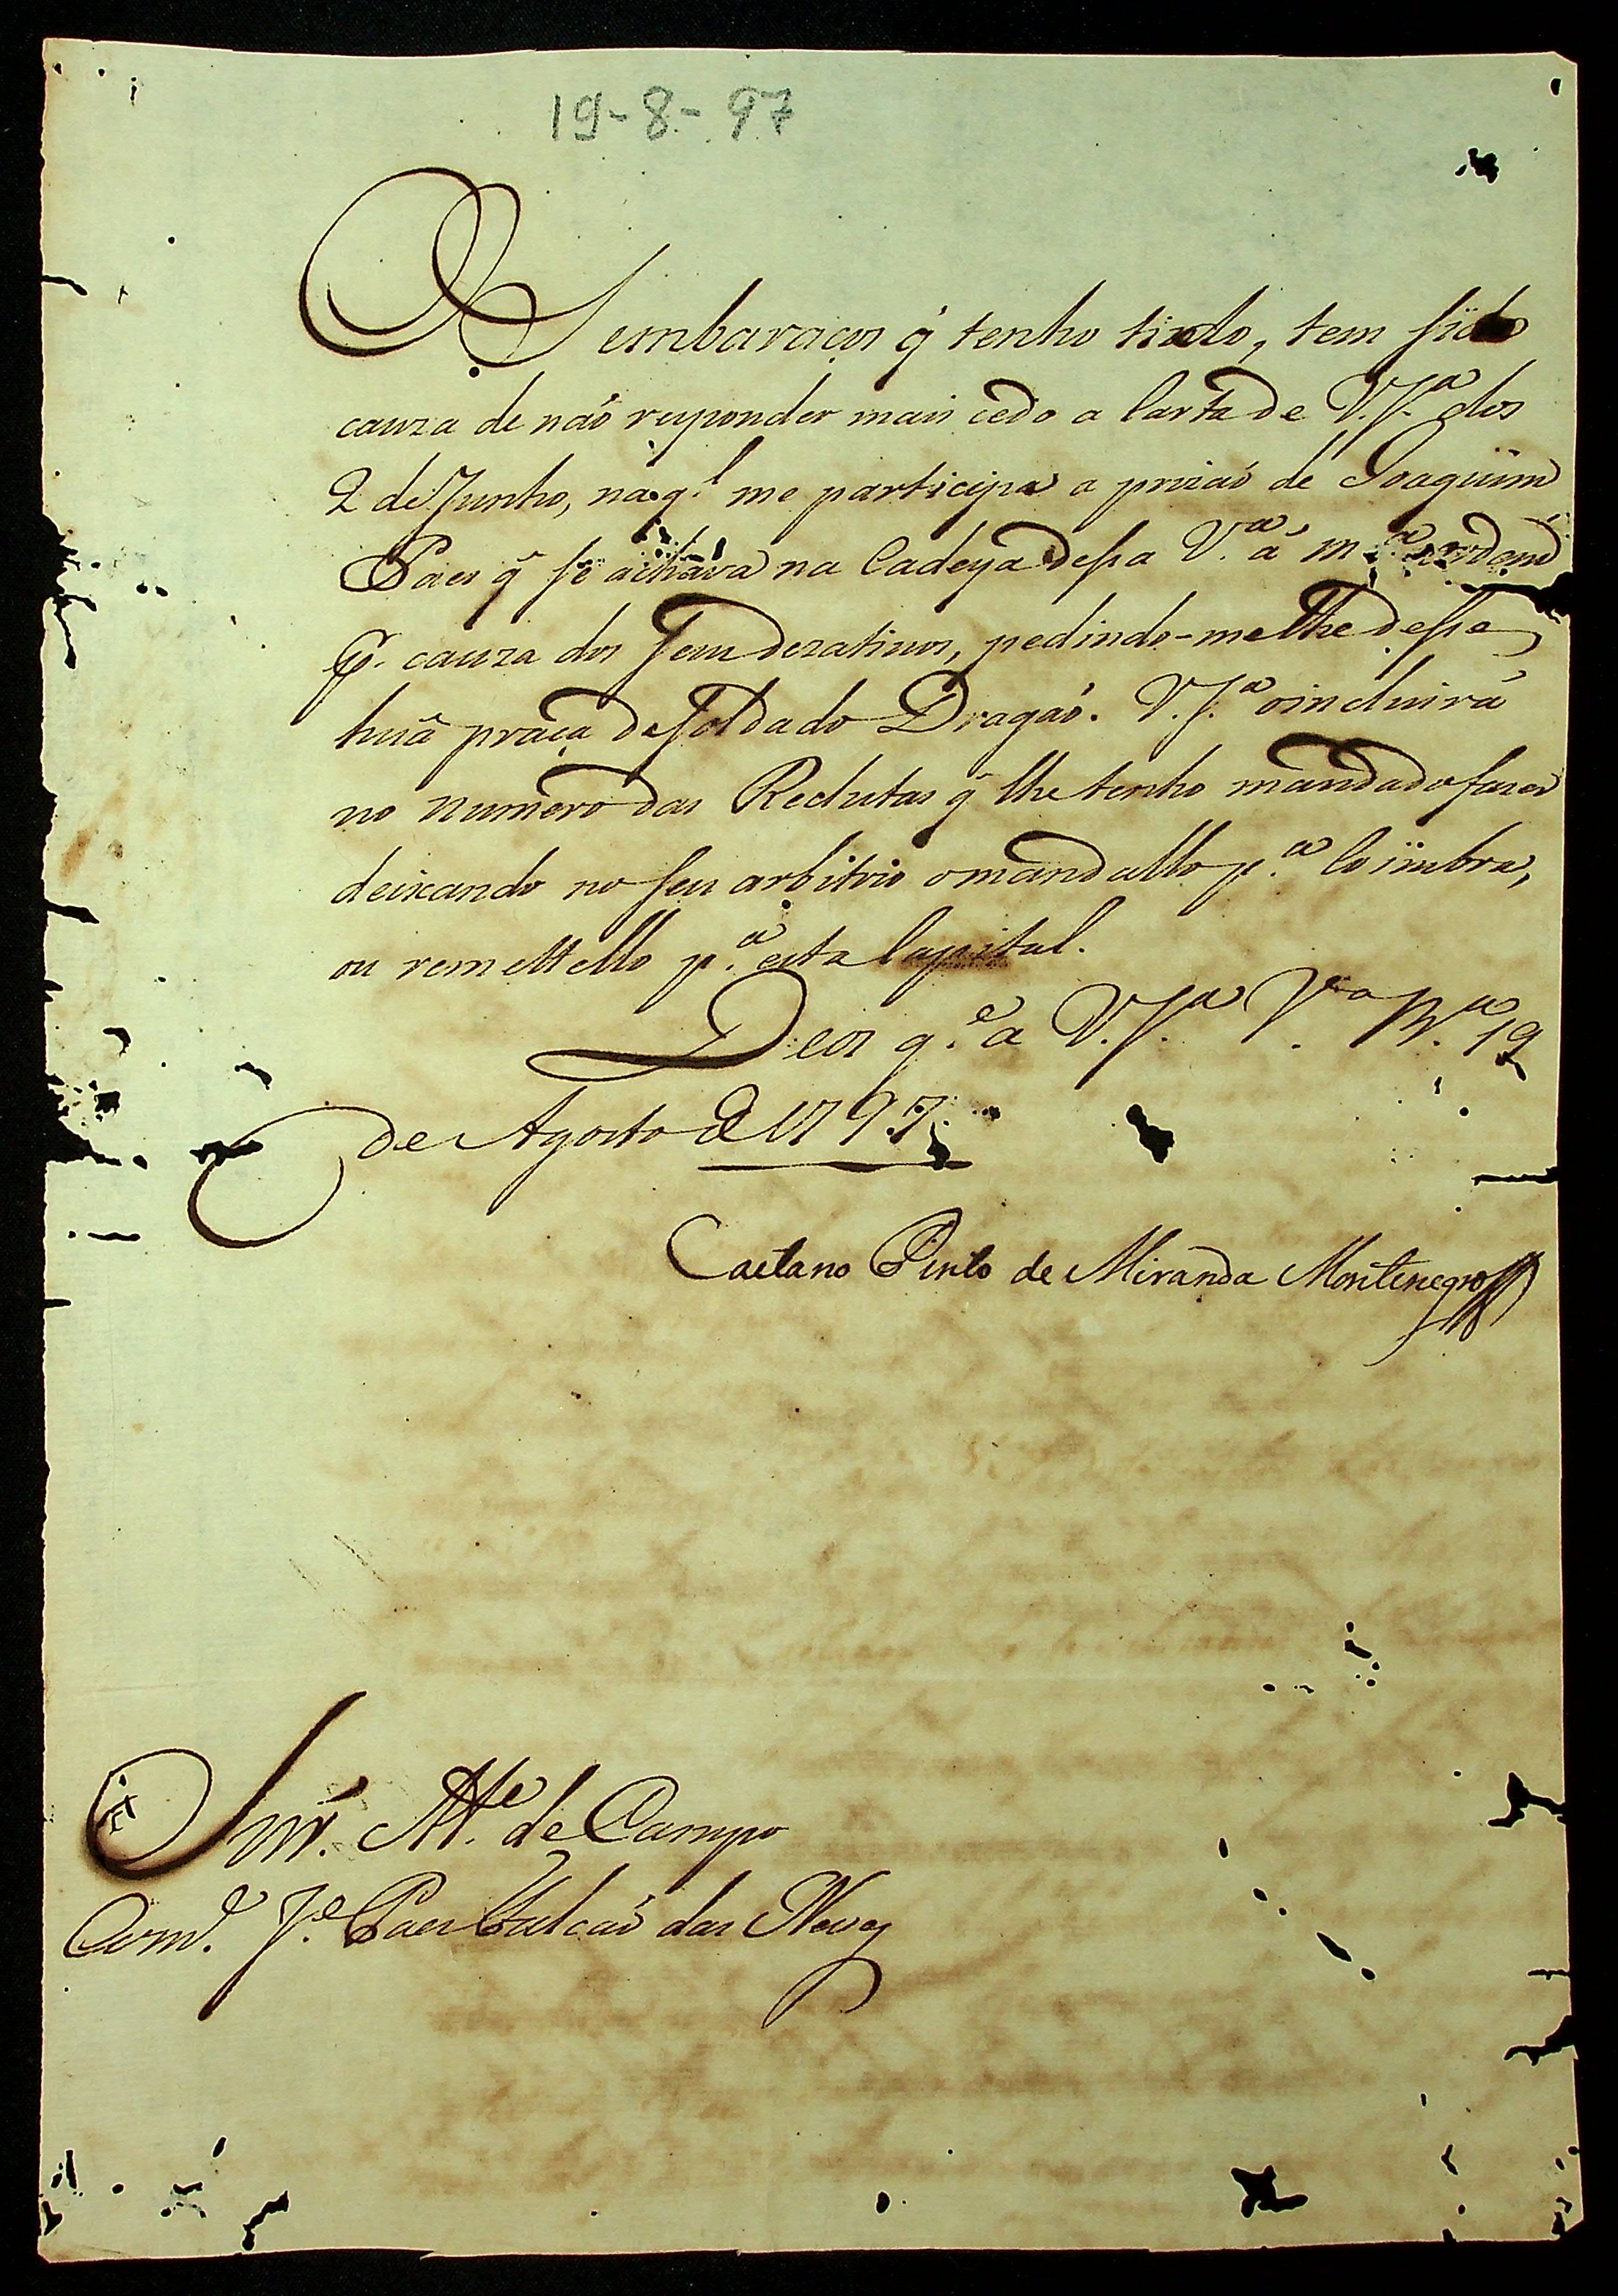 19-8-97
Os embaraços q̃ tenho tido, tem sido
cauza de não responder mais cedo a Carta de V.Sª dos
2 de Junho, na q.l me participa a prizaõ de Joaquim
Paes q̃ se achava na Cadeya dessa V.ª á m.ª ordem
p.r cauza dos seus dezatinos, pedindo-me lhe desse
huã praça de Soldado Dragaõ. V.S.ª o incluirá
no numero das Reclutas q̃ lhe tenho mandado fazer
deixando no seu arbitrio o mandallo p.ª Coimbra,
ou remettello p.ª esta Capital.
Deos g.e a V.S.ª V.ª B.ª 19
de Agosto de 1797.
Caetano Pinto de Miranda Montenegro
Snr. M.e de Campo
Com.e J.e Paes Falcaõ das Neves